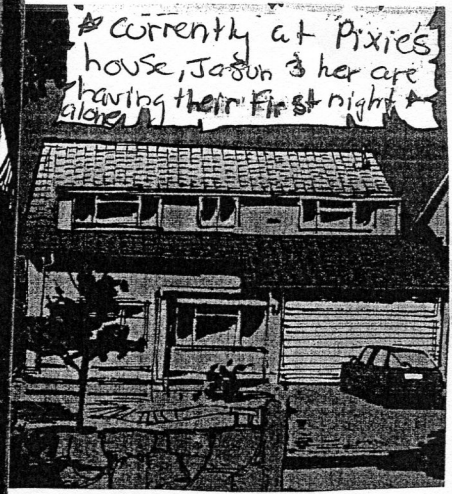 ☆ currently at Pixie's
house, Jasun & her are
having their first night ☆
alone